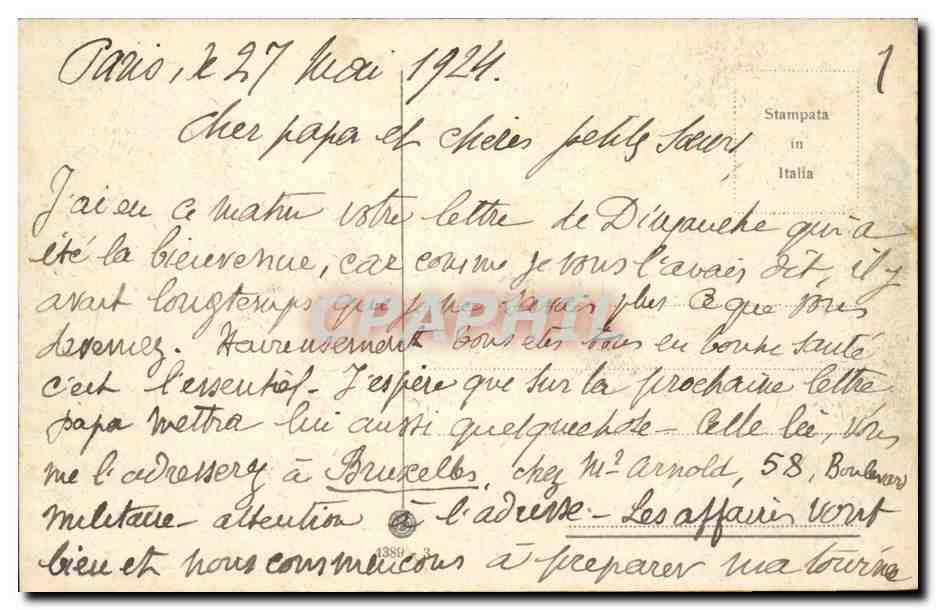 Paris, le 27 Mai 1924.
1
Stampata
in
Italia
Cher papa et chères petites Sœurs,
J'ai eu ce matin votre lettre de Dimanche qui a
été la bienvenue, car comme je vous l'avais dit, il y
avait longtemps que je ne savais plus ce que vous
deveniez. Heureusement vous êtes tous en bonne santé
c'est l'essentiel - J'espère que sur la prochaine lettre
papa mettra lui aussi quelquechose - Celle là, vous
me l'adresserez à Bruxelles, chez Mr Arnold, 58, Boulevard
militaire - attention à l'adresse - Les affaires vont
bien et nous commençons à préparer ma tournée
4389 3
CPAPHIL